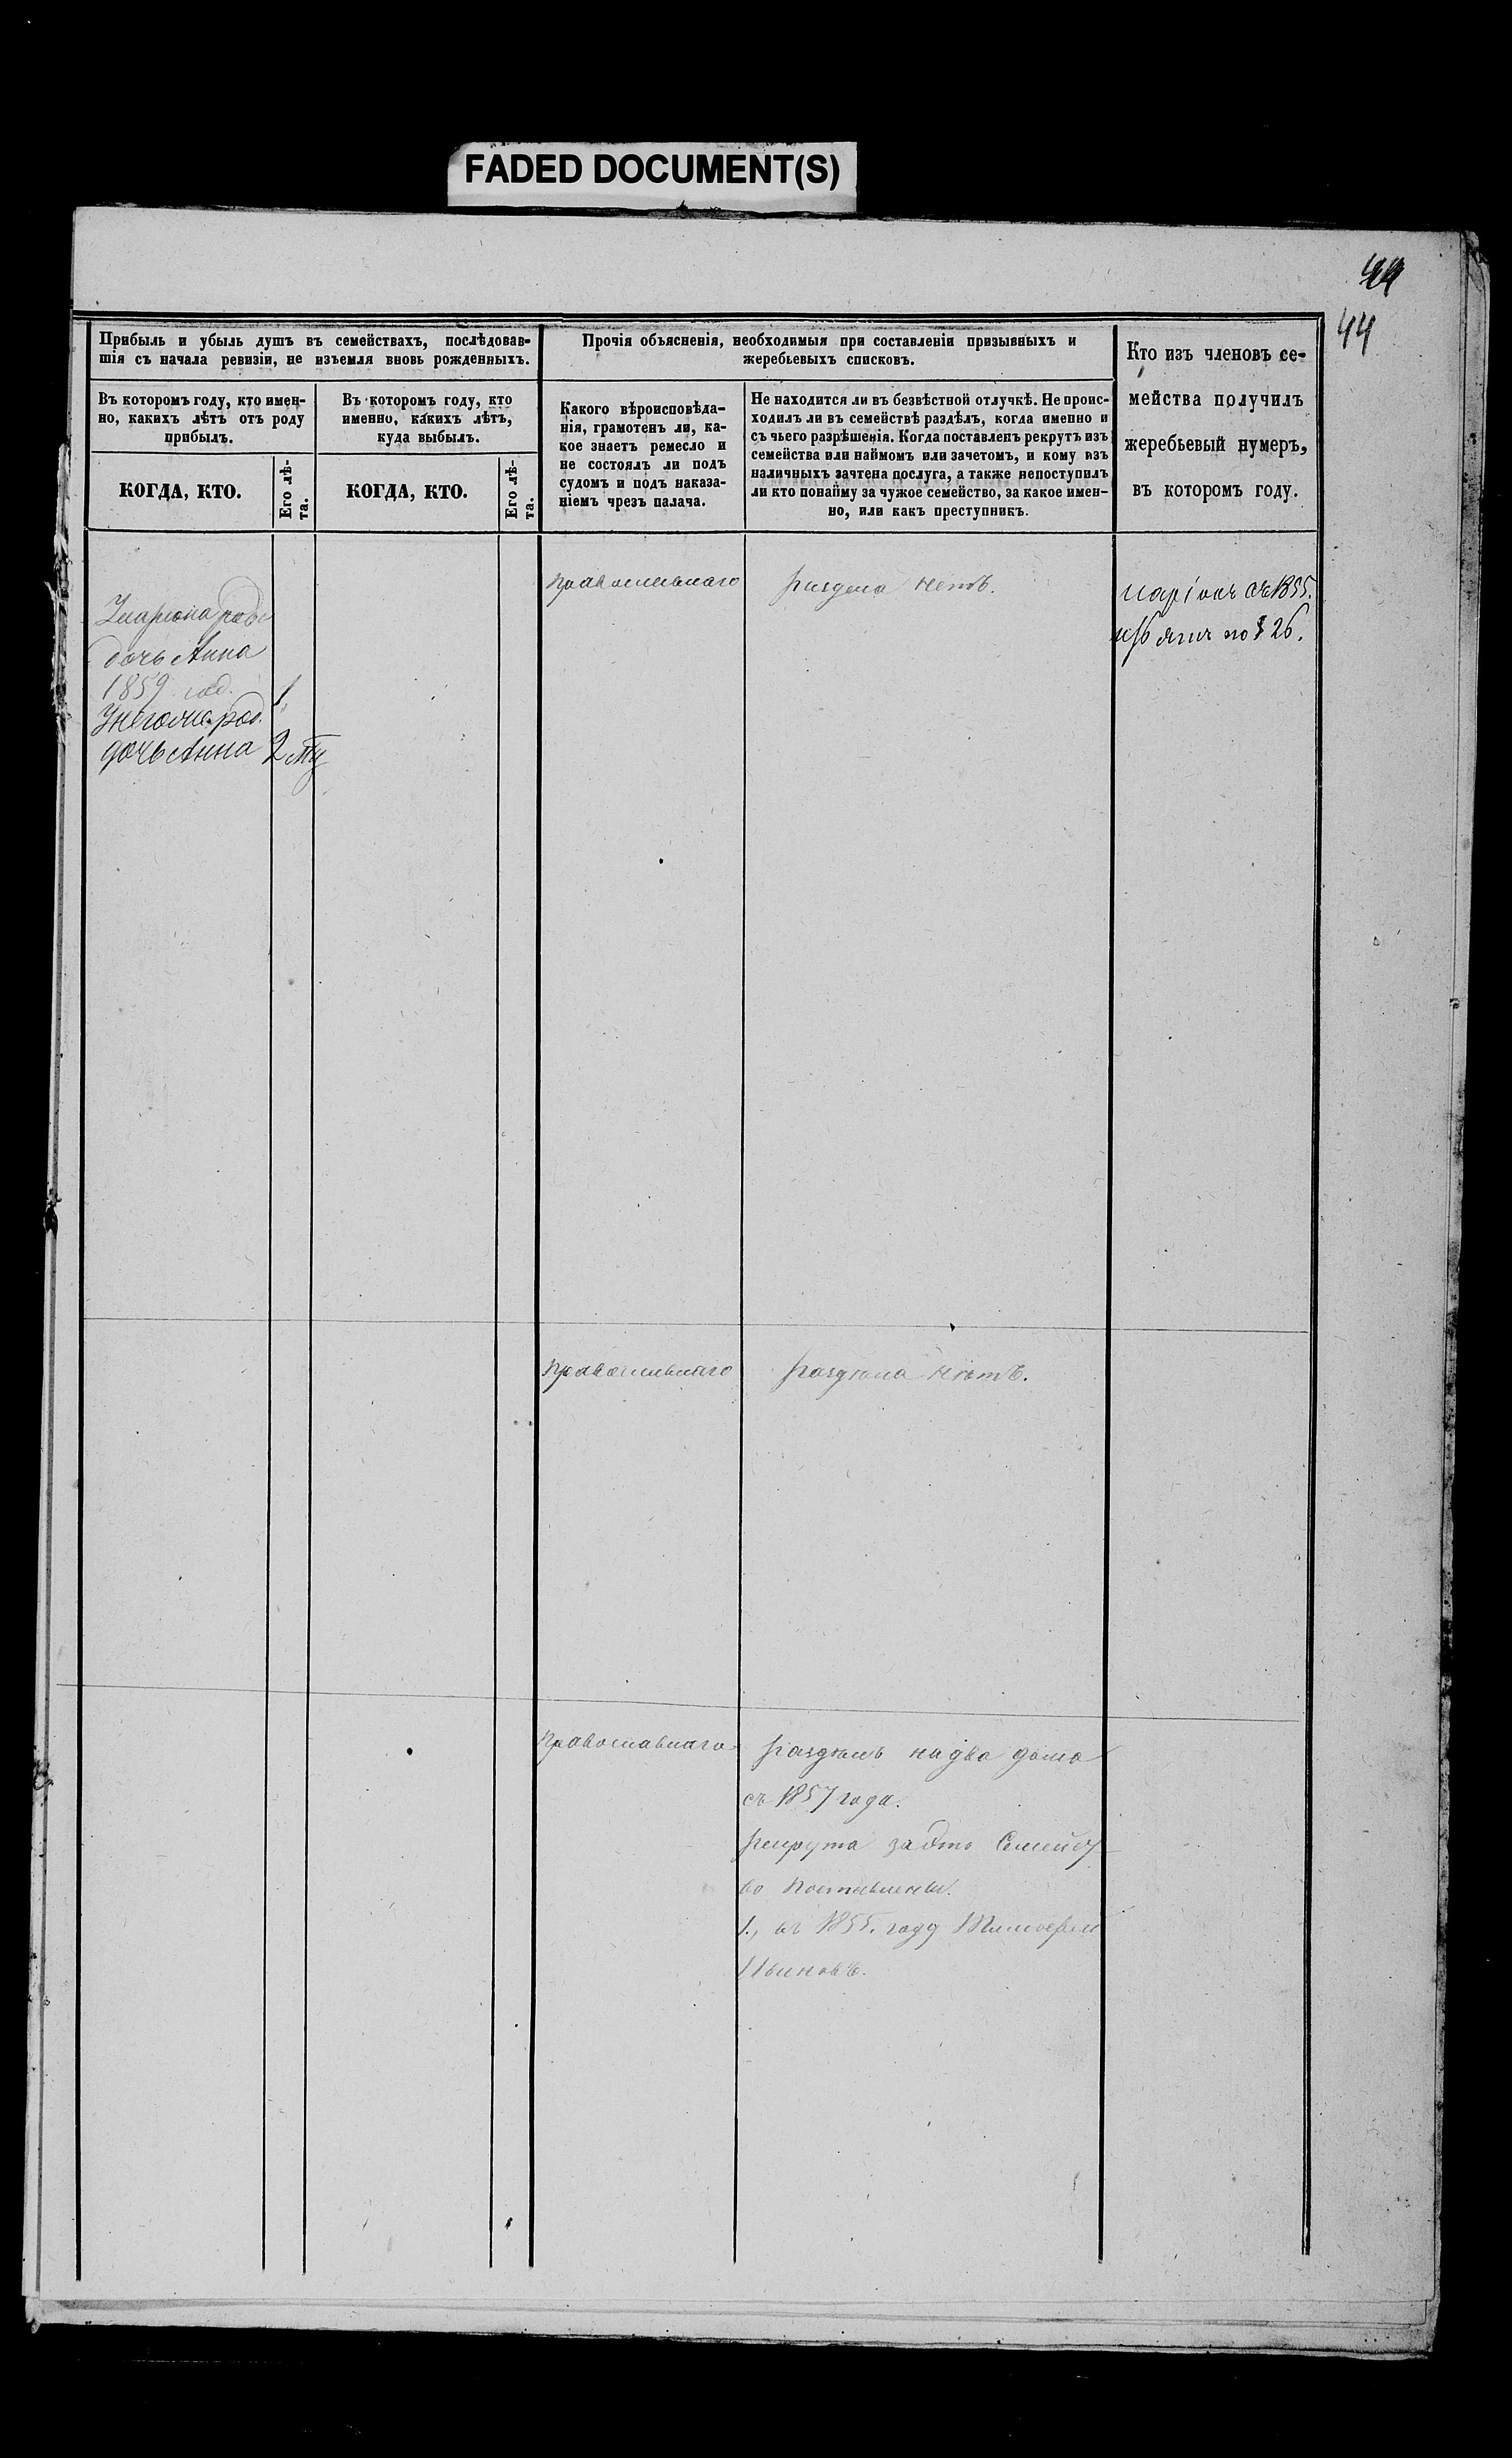 FADED DOCUMENT(S)
44
44
Прибыль и убыль душъ въ семействахъ, послѣдовав-
шія съ начала ревизіи, не изъемля вновь рожденныхъ.
Въ которомъ году, кто имен-
но, какихъ лѣтъ отъ роду
прибылъ.
КОГДА, КТО.
Его лѣ-
та.
Въ которомъ году, кто
именно, какихъ лѣтъ,
куда выбылъ.
КОГДА, КТО.
Его лѣ-
та.
Прочія объясненія, необходимыя при составленіи призывныхъ и
жеребьевыхъ списковъ.
Какого вѣроисповѣда-
нія, грамотенъ ли, ка-
кое знаетъ ремесло и
не состоялъ ли подъ
судомъ и подъ наказа-
ніемъ чрезъ палача.
Не находится ли въ безвѣстной отлучкѣ. Не проис-
ходилъ ли въ семействѣ раздѣлъ, когда именно и
съ чьего разрѣшенія. Когда поставленъ рекрутъ изъ
семейства или наймомъ или зачетомъ, и кому изъ
наличныхъ зачтена послуга, а также непоступилъ
ли кто понайму за чужое семейство, за какое имен-
но, или какъ преступникъ.
Кто изъ членовъ се-
мейства получилъ
жеребьевый нумеръ,
въ которомъ году.
дочь Анна
1859 год. 1
дочь Анна 2
православнаго
раздела нетъ.
1855.
26.
православнаго
раздѣла нѣтъ.
православнаго
раздѣлъ на два дома
съ 1857 года.
рекрута за это Семейст
во поставлены.
1., въ 1855. году